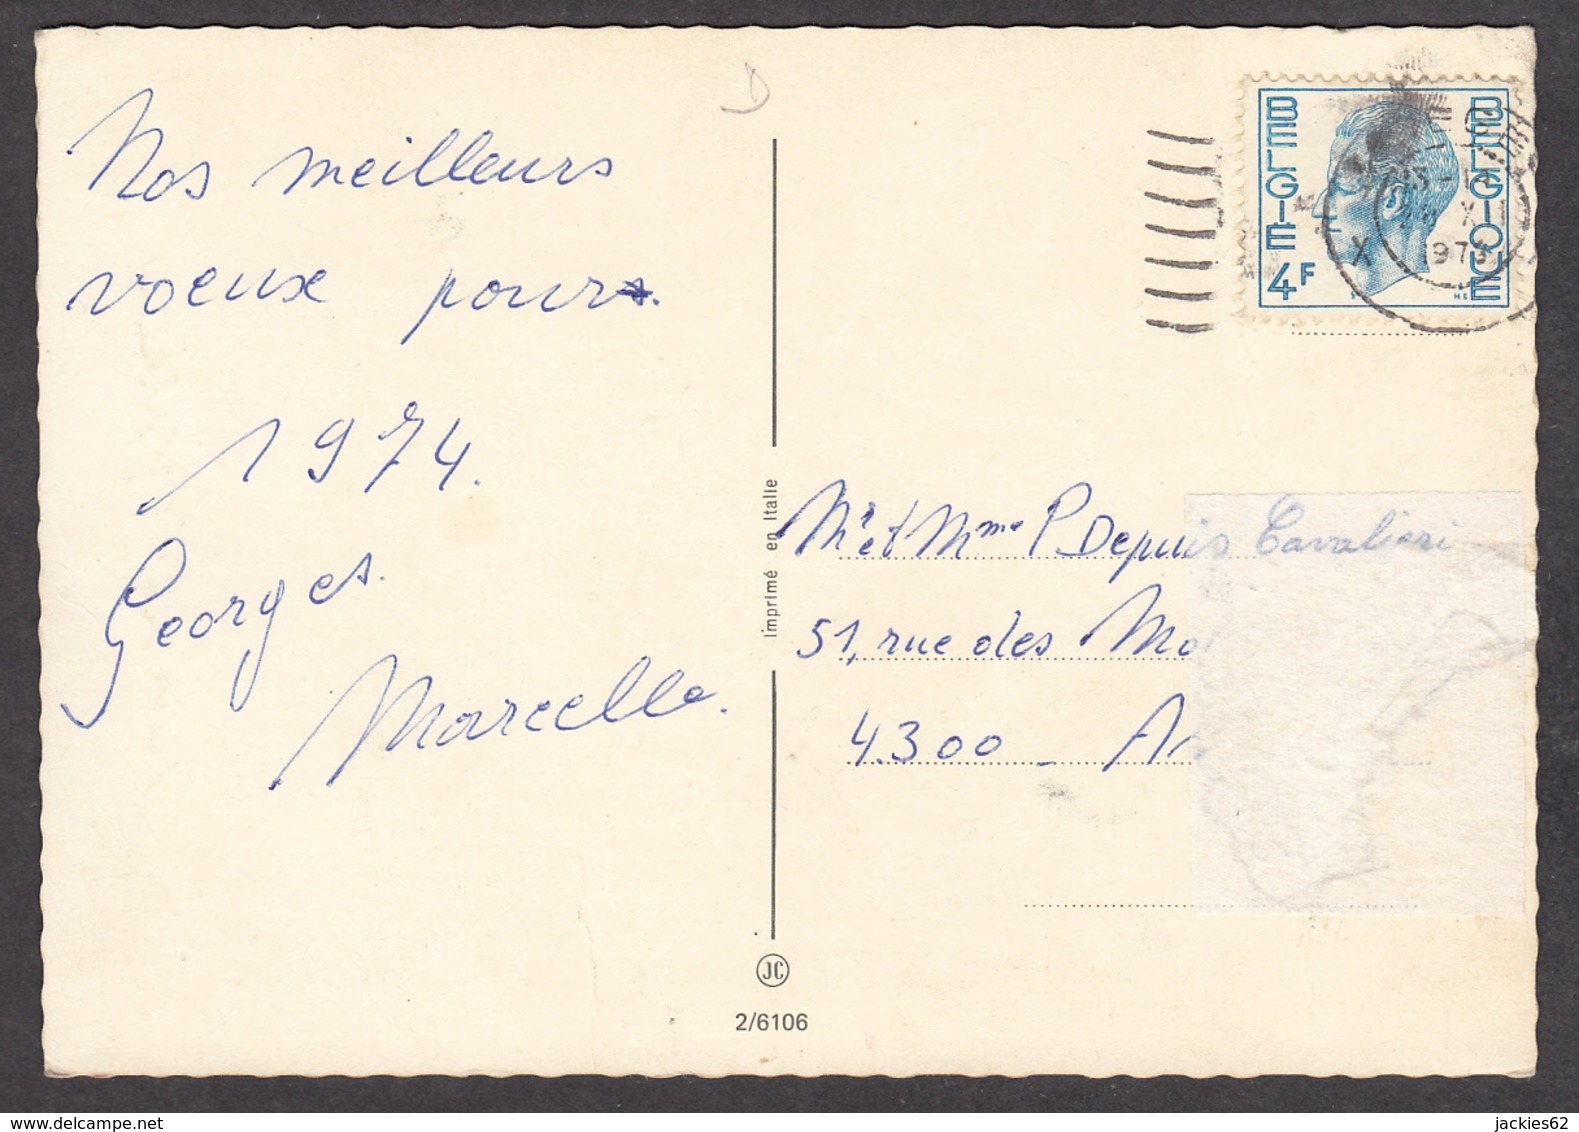 D
Nos meilleurs
voeux pour
1974.
Georges.
Marcelle.
Imprimé en Italie
JC
2/6106
BELGIE BELGIQUE
4F
X
1973
Mr et Mme P Depuis Cavalieri
51, rue des Mo
4.300 - A
delcampe.net
jackies62